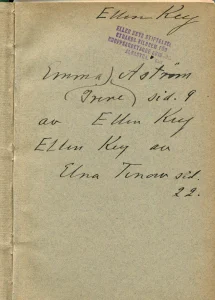 Ellen Key
Emma) Aström
(Irene) sid. 9
av Ellen Key
Ellen Key av
Elna Tenow sid.
22.